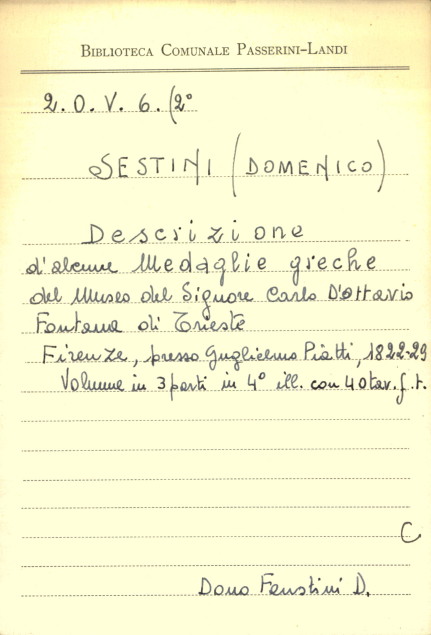 BIBLIOTECA COMUNALE PASSERINI-LANDI
2. O. V. 6. (2°
SESTINI (DOMENICO)
Descrizione
d'alcune Medaglie greche
del Museo del Signore Carlo D'Ottavio
Fontana di Trieste
Firenze, presso Guglielmo Piatti, 1822-29
Volume in 3 parti in 4° ill. con 40 tav. f. t.
C
Dono Faustini D.